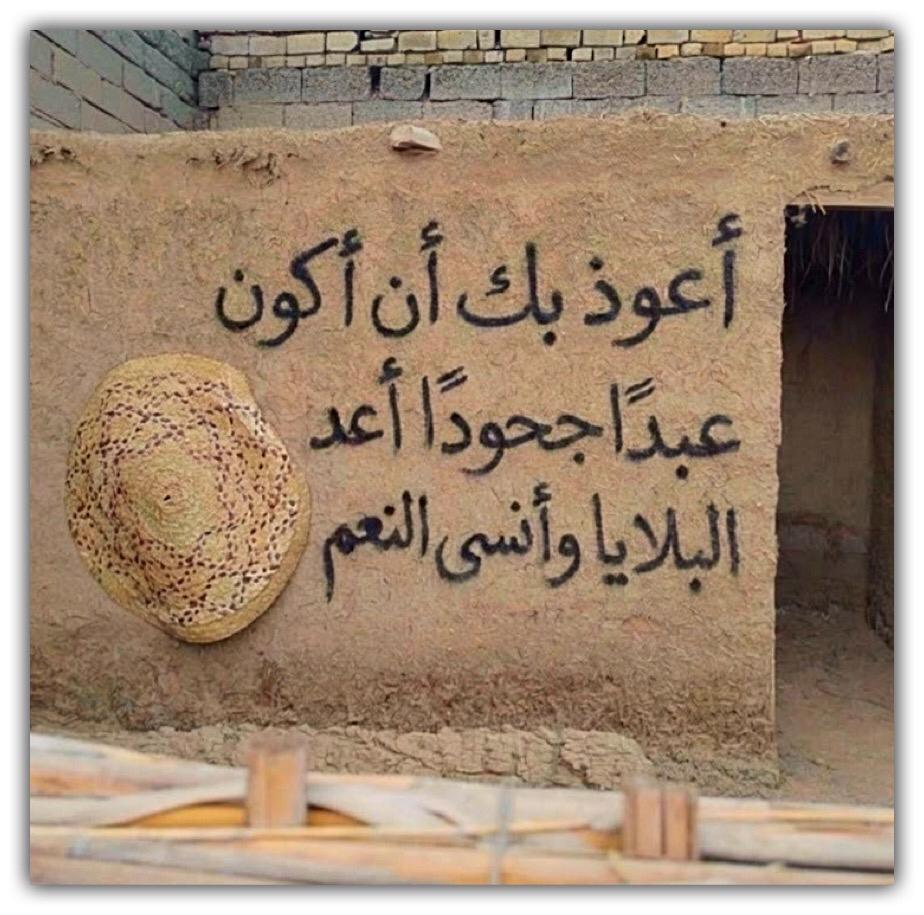 أعوذ بك أن أكون
عبدًا جحودًا أعد
البلايا وأنسى النعم